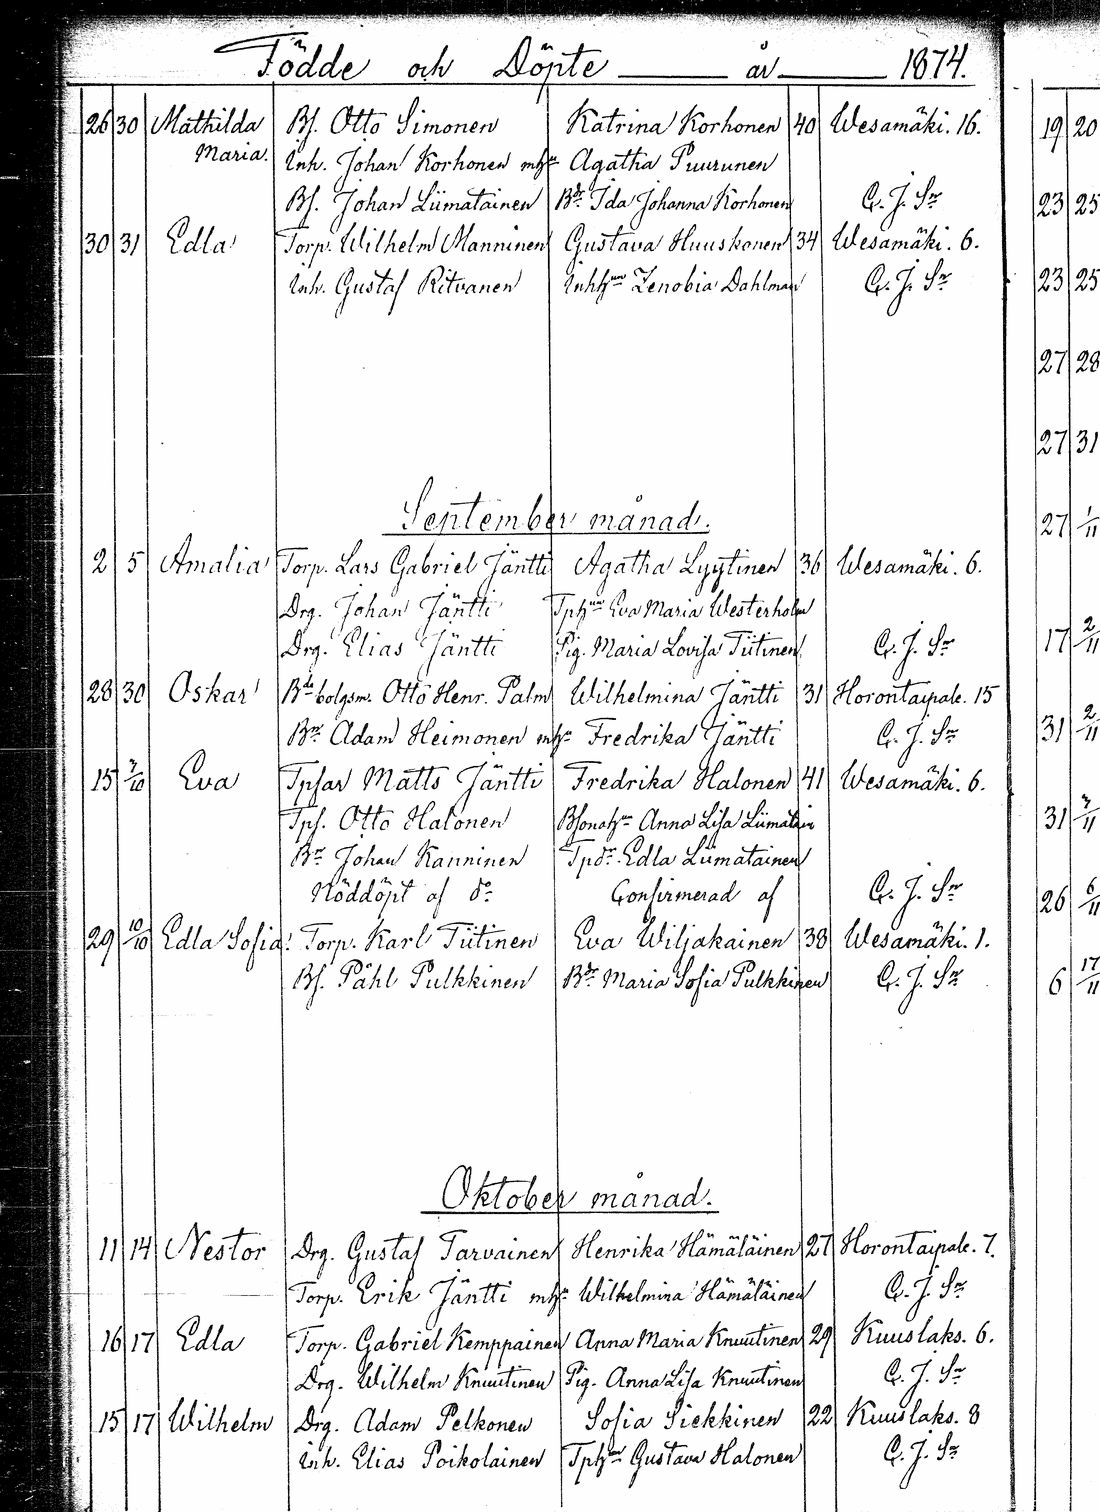 Födde och Döpte år 1874.
26 30 Mathilda Bs. Otto Simonen Katrina Korhonen 40 Wesamäki. 16.
Maria. Inh. Johan Korhonen mhu Agatha Puurunen
Bs. Johan Liimatainen Bdr Ida Johanna Korhonen C. J. Sr
30 31 Edla Torp. Wilhelm Manninen Gustava Huuskonen 34 Wesamäki. 6.
Inh. Gustaf Ritvanen Inhhun Zenobia Dahlman C. J. Sr
September månad.
2 5 Amalia Torp. Lars Gabriel Jäntti Agatha Lyytinen 36 Wesamäki. 6.
Drg. Johan Jäntti Tphun Eva Maria Westerholm
Drg. Elias Jäntti Pig. Maria Lovisa Tiitinen C. J. Sr
28 30 Oskar Bde bolgsm. Otto Henr. Palm Wilhelmina Jäntti 31 Horontaipale. 15
Bnr Adam Heimonen mhu Fredrika Jäntti C. J. Sr
15 7/10 Eva Tpsar Matts Jäntti Fredrika Halonen 41 Wesamäki. 6.
Tps. Otto Halonen Bsonahun Anna Lisa Liimatain
Bnr Johan Kanninen Tpdr Edla Liimatainen
Nöddöpt af do Confirmerad af C. J. Sr
29 10/10 Edla Sofia Torp. Karl Tiitinen Eva Wiljakainen 38 Wesamäki. 1.
Bs. Påhl Pulkkinen Bdr Maria Sofia Pulkkinen C. J. Sr
Oktober månad.
11 14 Nestor Drg. Gustaf Tarvainen Henrika Hämäläinen 27 Horontaipale. 7.
Torp. Erik Jäntti mhu Wilhelmina Hämäläinen C. J. Sr
16 17 Edla Torp. Gabriel Kemppainen Anna Maria Knuutinen 29 Kuuslaks. 6.
Drg. Wilhelm Knuutinen Pig. Anna Lisa Knuutinen C. J. Sr
15 17 Wilhelm Drg. Adam Pelkonen Sofia Siekkinen 22 Kuuslaks. 8
Inh. Elias Poikolainen Tphun Gustava Halonen C. J. Sr
19 20
23 25
23 25
27 28
27 31
27 1/11
17 2/11
31 2/11
31 7/11
26 6/11
6 17/11